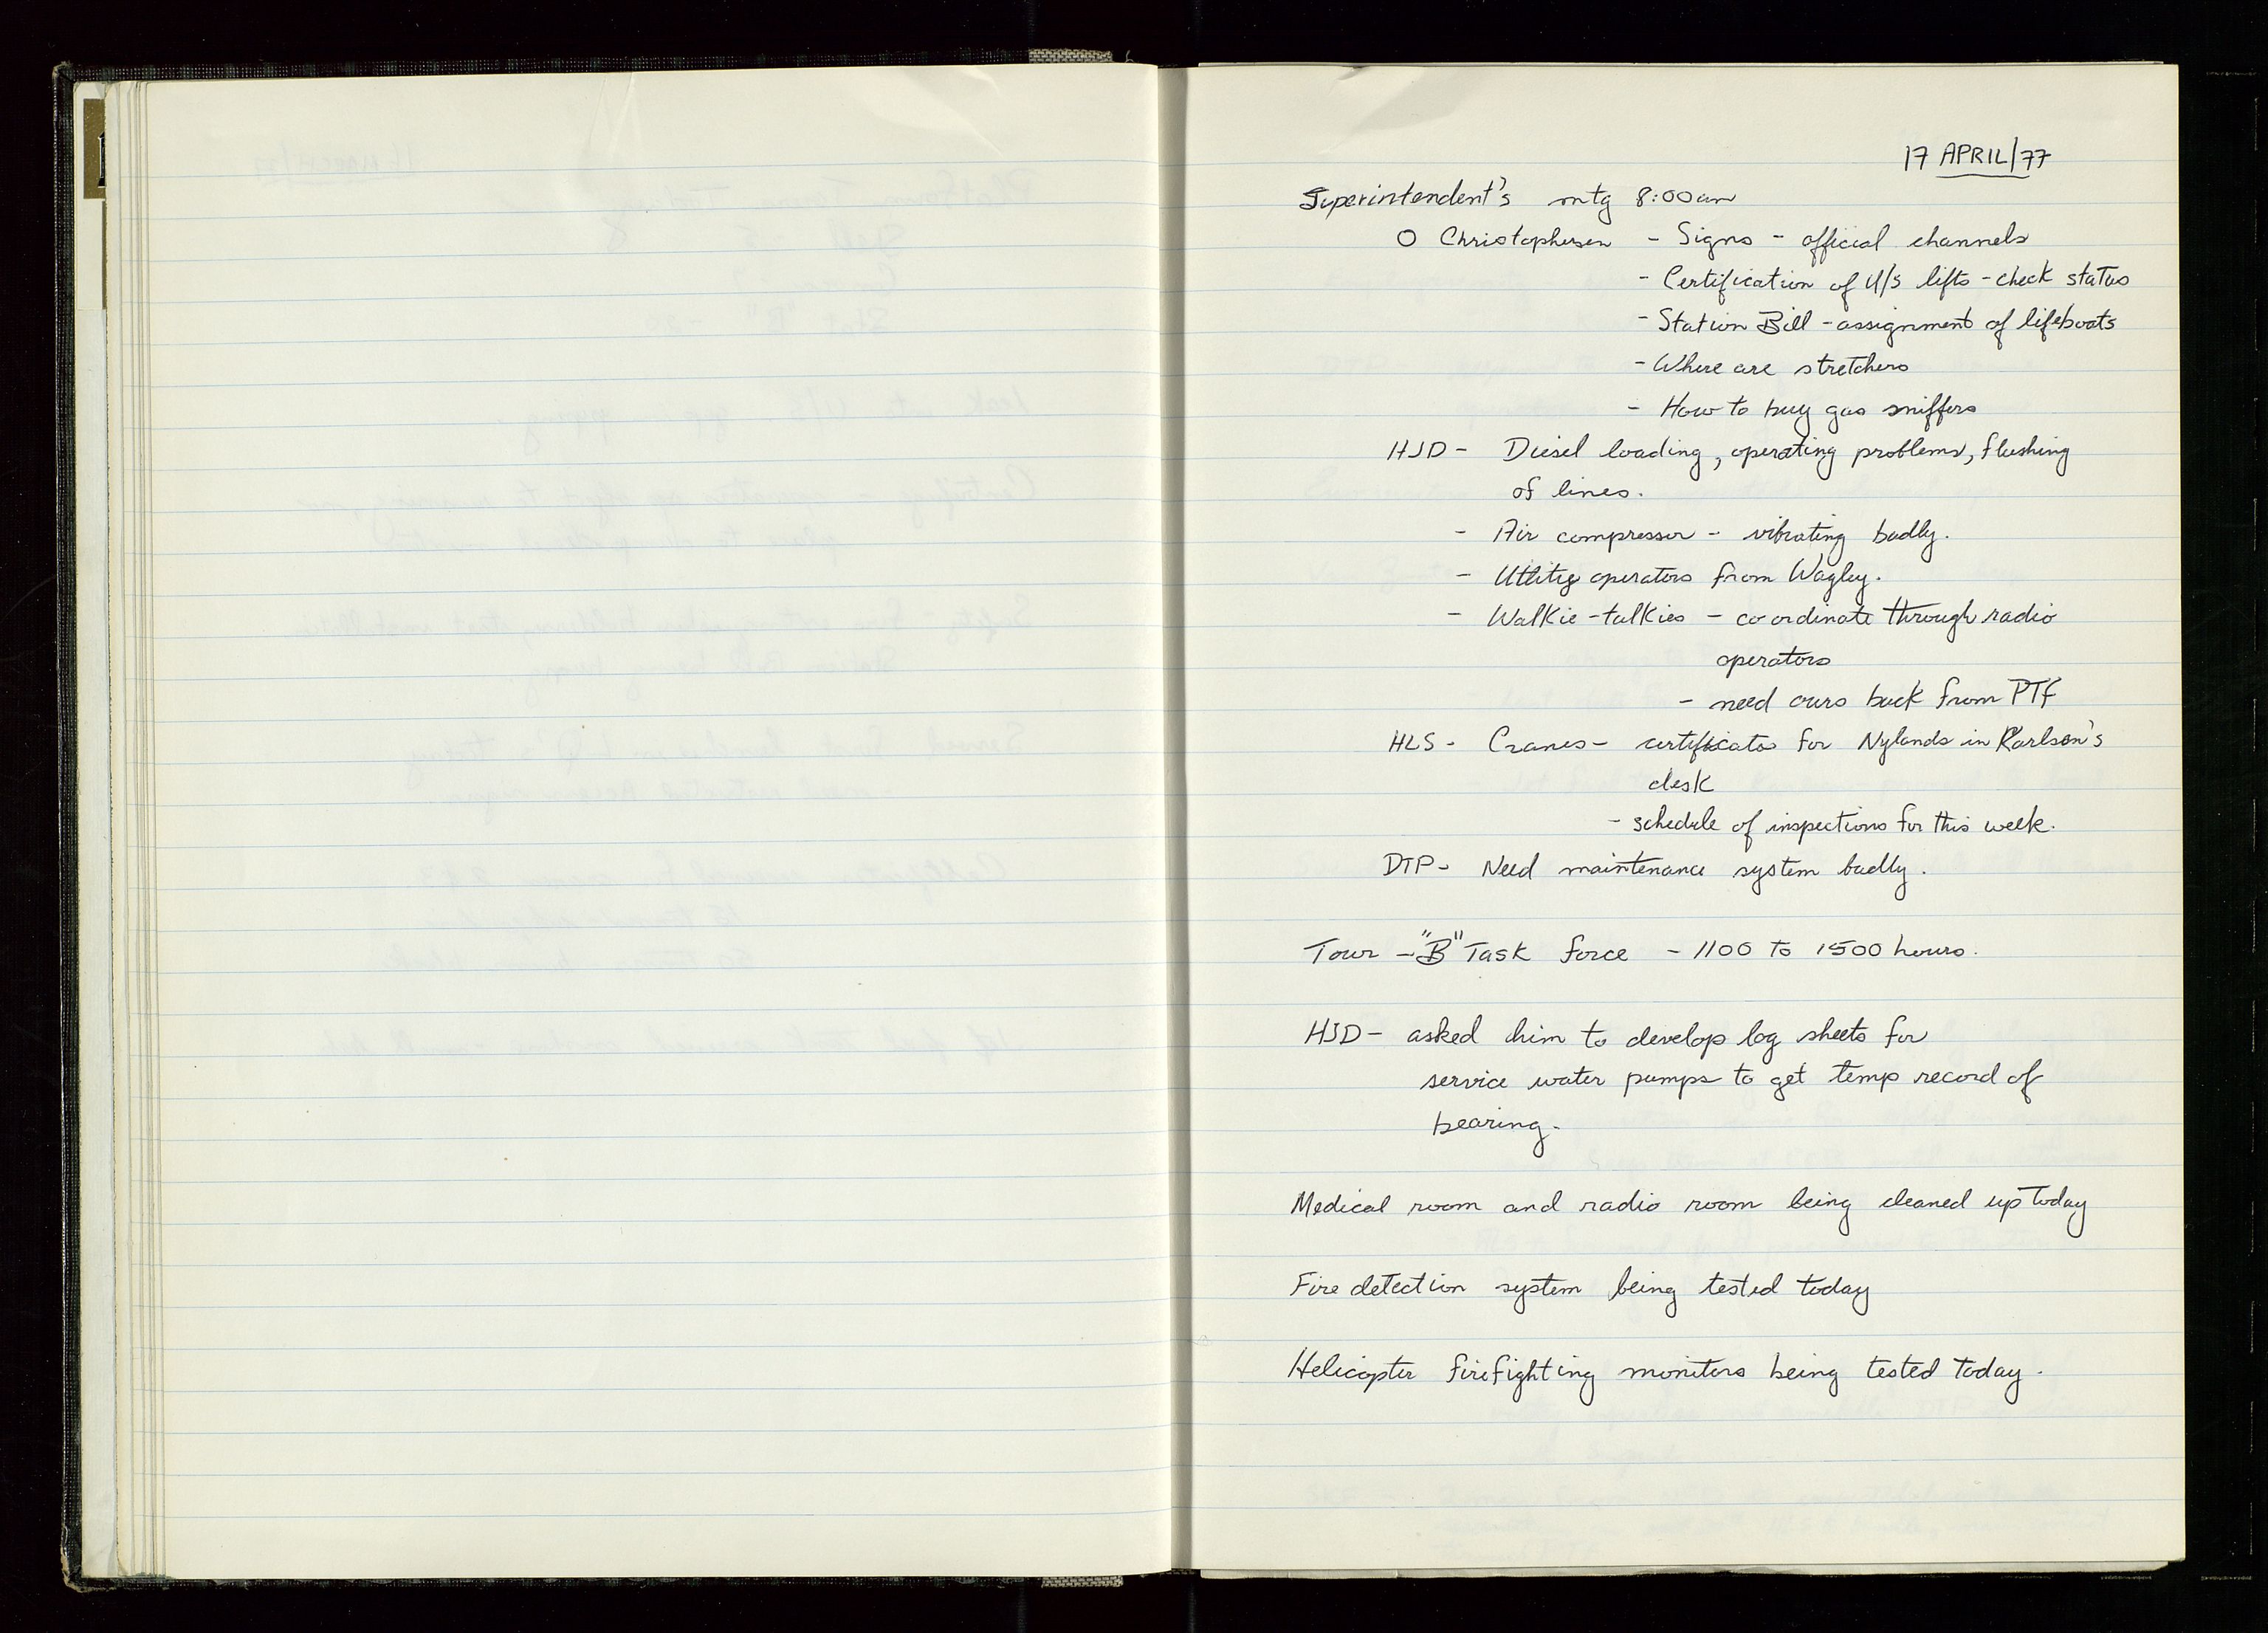 17 APRIL/77
Superintendent's mtg 8:00am
O Christophersen - Signs - official channels
- Certification of U/S lifts - check status
- Station Bill - assignment of lifeboats
- Where are stretchers
- How to buy gas sniffers
HJD - Diesel loading, operating problems, flushing
of lines.
- Air compressor - vibrating badly.
- Utlity operators from Wagley.
- Walkie-talkies - coordinate through radio
operators
- need ours back from PTF
HLS - Cranes - certificates for Nylands in Karlson's
desk
- schedule of inspections for this week.
DTP - Need maintenance system badly.
Tour - "B" Task Force - 1100 to 1500 hours.
HJD - asked him to develop log sheets for
service water pumps to get temp record of
bearing.
Medical room and radio room being cleaned up today
Fire detection system being tested today
Helicopter firefighting monitors being tested today.